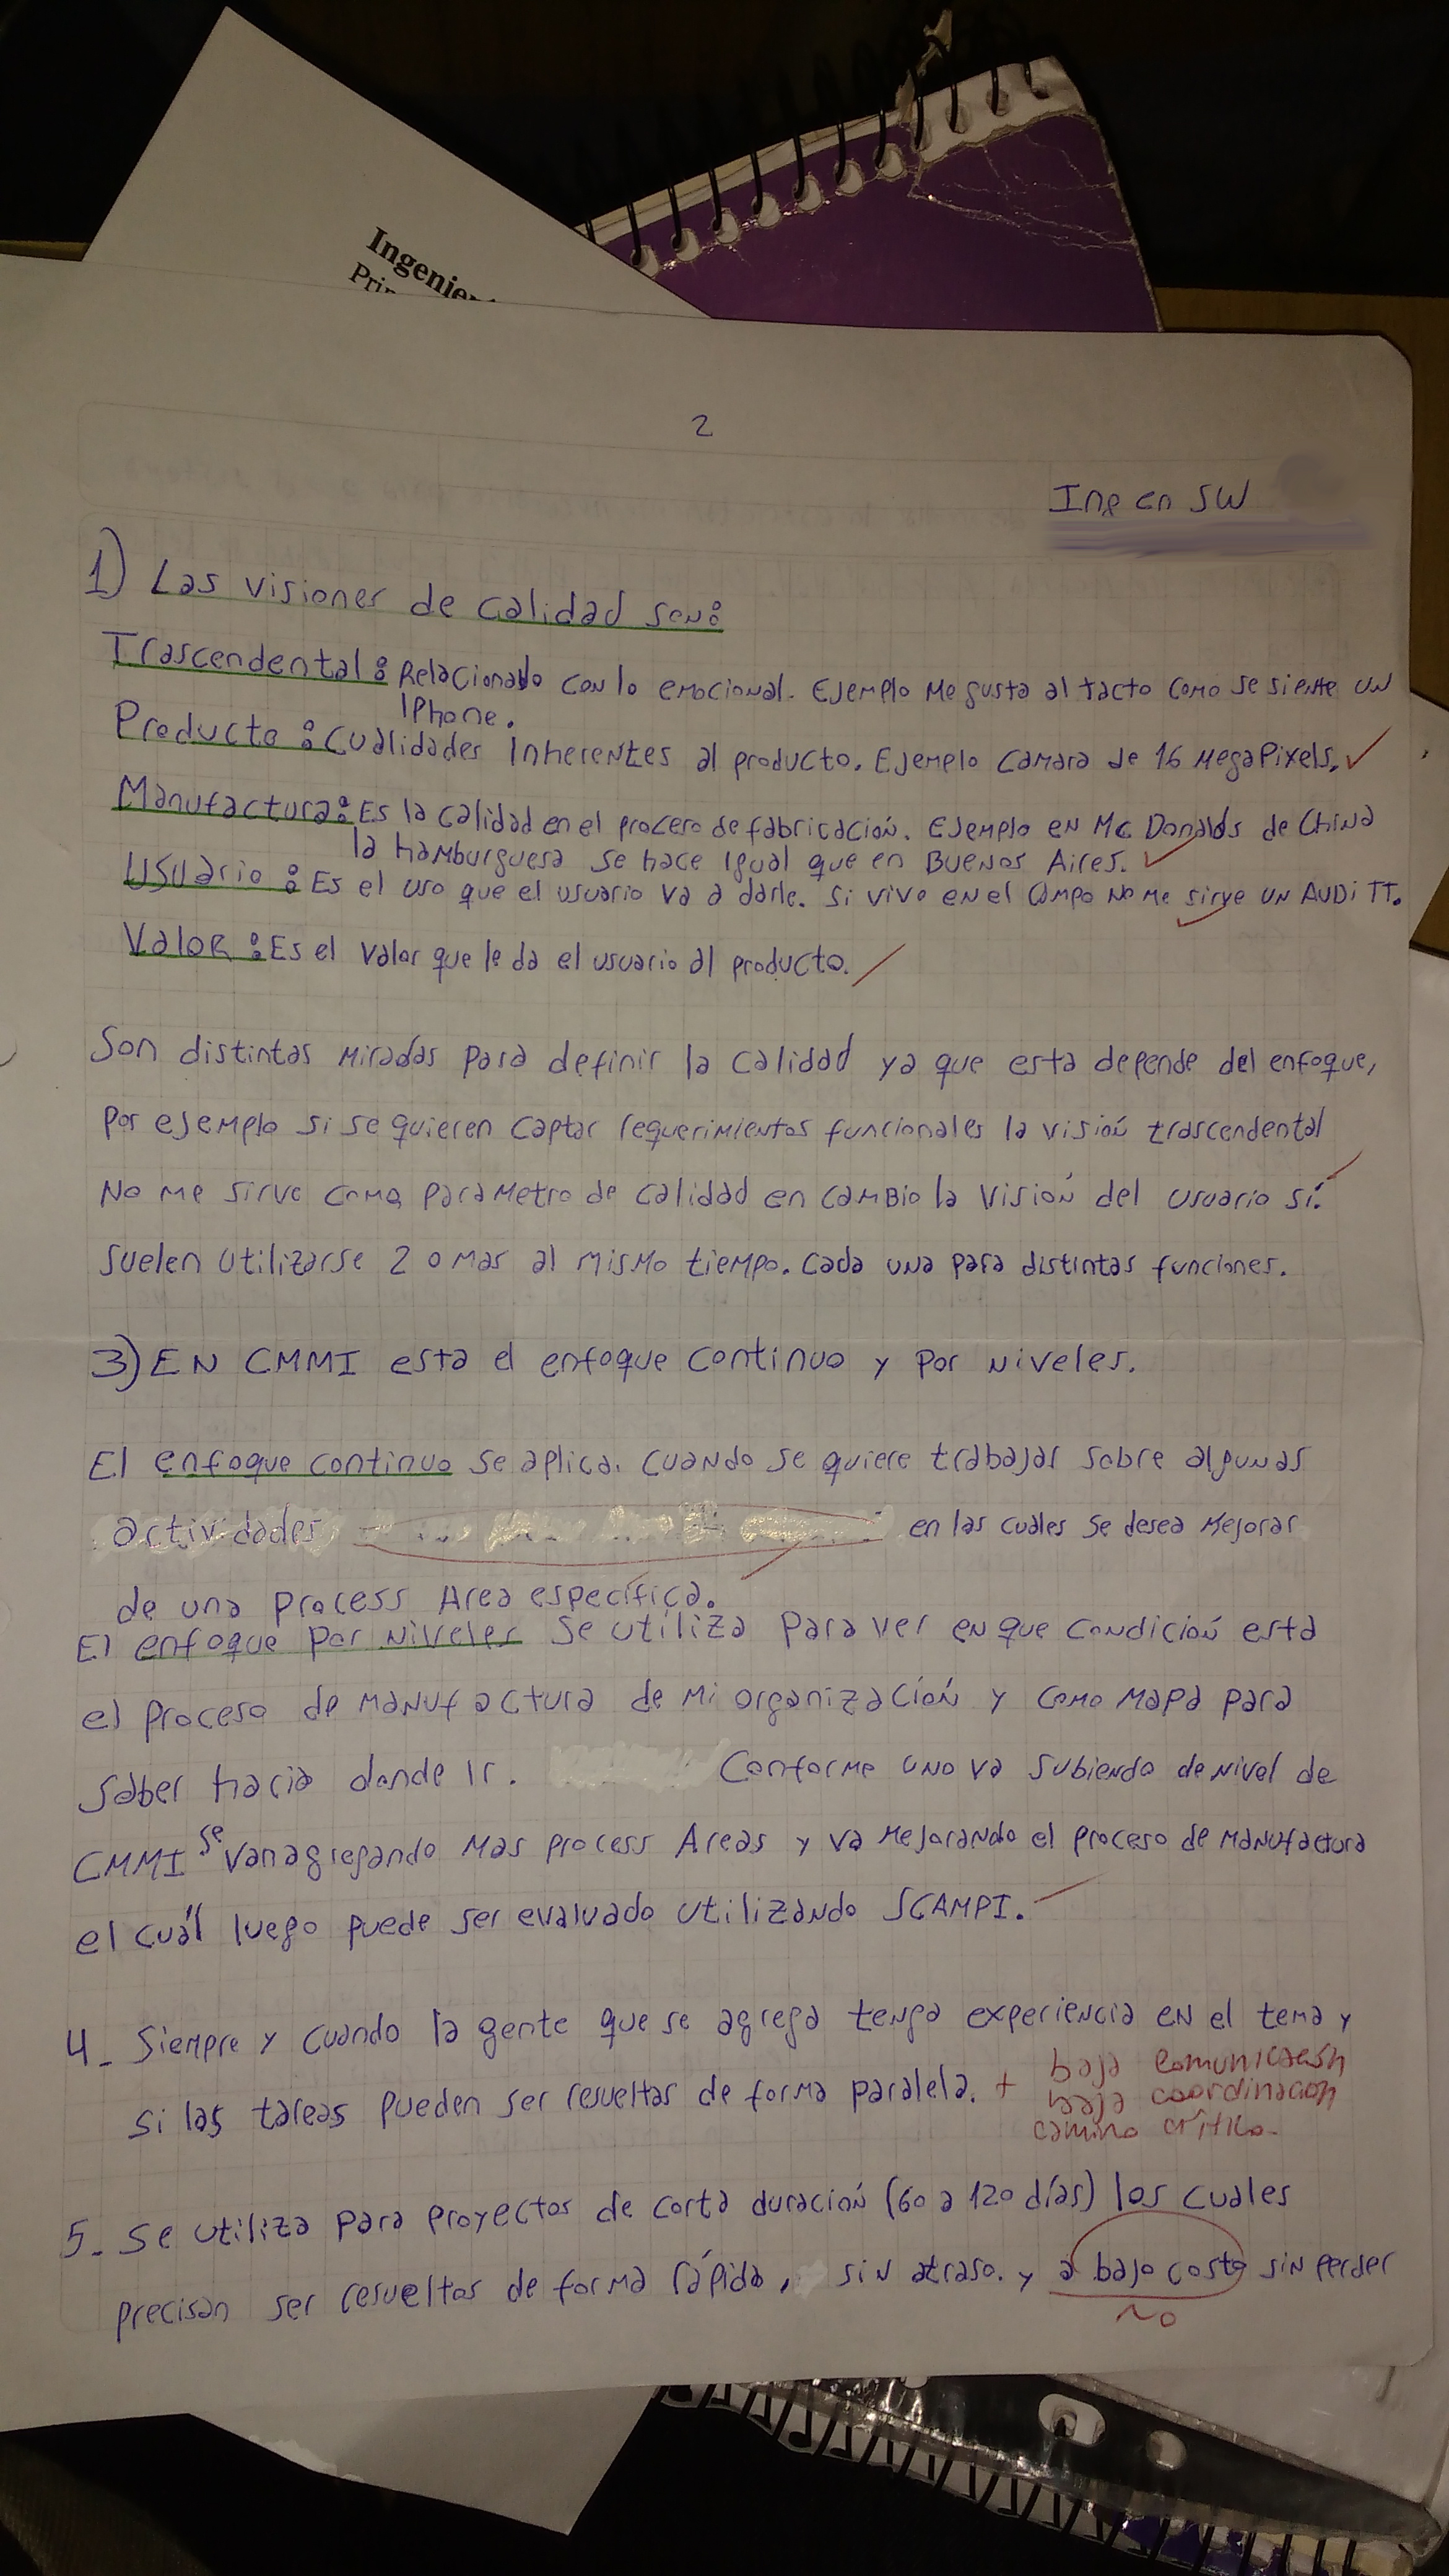 Ingenie
Pri
2
Ing en SW
1) Las visiones de calidad son:
Trascendental: Relacionado con lo emocional. Ejemplo Me gusta al tacto como se siente un
IPhone.
Producto: Cualidades inherentes al producto. Ejemplo camara de 16 MegaPixels.
Manufactura: Es la calidad en el proceso de fabricación. Ejemplo en Mc Donalds de China
la hamburguesa se hace igual que en Buenos Aires.
Usuario: Es el uso que el usuario va a darle. Si vivo en el campo no me sirve un AUDI TT.
Valor: Es el valor que le da el usuario al producto.
Son distintas miradas para definir la calidad ya que esta depende del enfoque,
Por ejemplo si se quieren captar requerimientos funcionales la visión trascendental
No me sirve como parametro de calidad en cambio la visión del usuario sí.
Suelen utilizarse 2 o mas al mismo tiempo. Cada una para distintas funciones.
3) EN CMMI esta el enfoque continuo y por niveles.
El enfoque continuo se aplica. Cuando se quiere trabajar sobre algunas
actividades en las cuales se desea mejorar
de una Process Area específica.
El enfoque por niveles se utiliza para ver en que condición esta
el proceso de manufactura de mi organización y como mapa para
saber hacia donde ir. Conforme uno va subiendo de nivel de
CMMI se van agregando mas process Areas y va mejorando el proceso de manufactura
el cuál luego puede ser evaluado utilizando SCAMPI.
4- Siempre y cuando la gente que se agrega tenga experiencia en el tema y
si las tareas pueden ser resueltas de forma paralela. + baja comunicación
baja coordinación
camino crítico.
5- Se utiliza para proyectos de corta duración (60 a 120 días) los cuales
precisan ser resueltos de forma rápida, sin atraso. y a bajo costo sin perder
no